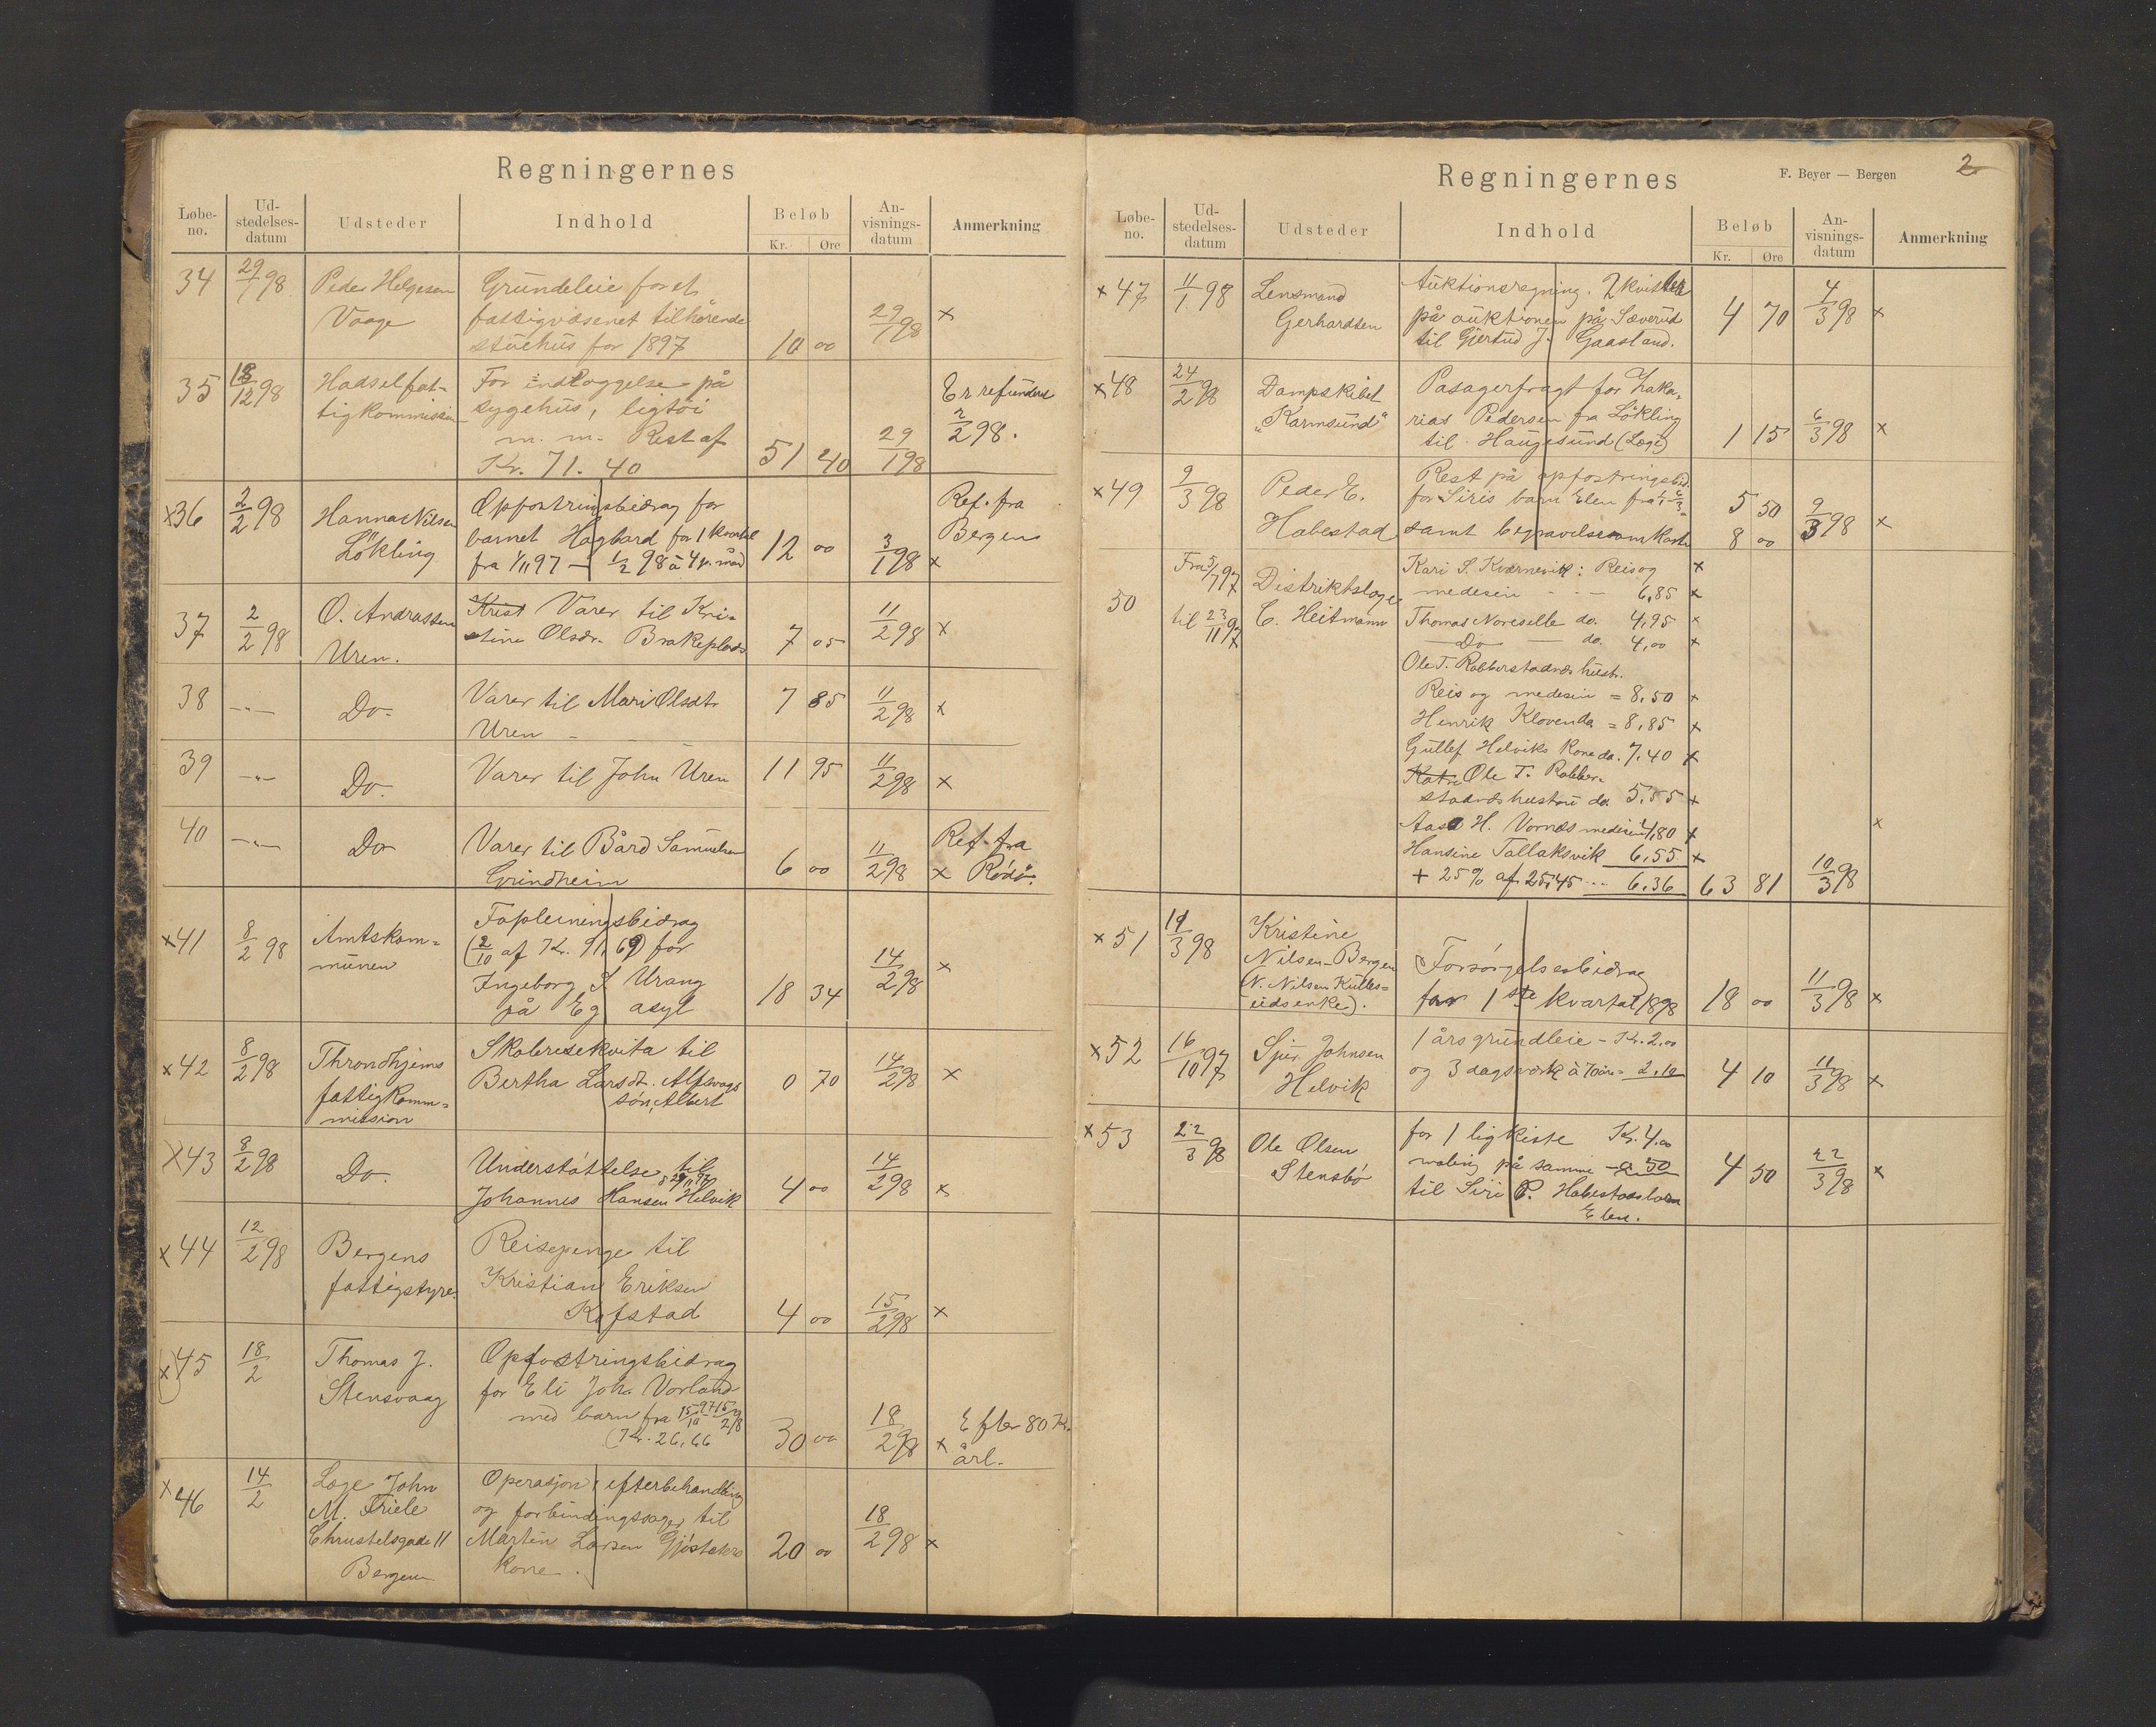 Regningernes
Løbe-no. Ud-stedelses-datum Udsteder Indhold Beløb Kr. Øre An-visnings-datum Anmerkning
34 29/1 98 Peder Helgesen Grundeleie for et
Vaage fattigvæsenet tilhørende 29/1 98 x
stuehus for 1897 10 00
35 18/12 98 Hadsel fat- For indlæggelse på Er refunderet
tigkommission sygehus, ligtøi 2/2 98.
m. m. Rest af 29/1 98
Kr. 71. 40 51 40
x36 2/2 98 Hanna Nilsen Opfostringsbidrag for Ref. fra
Løkling barnet Hagbard for 1 kvartal 12 00 3/1 98 x Bergen
fra 1/11 97 – 1/2 98 à 4 kr. mån
37 2/2 98 O. Andrassen Krist Varer til Kri- 11/2 98 x
Uren. stine Olsdr. Brakeplads 7 05
38 –"– Do- Varer til Mari Olsdtr 7 85 11/2 98 x
Uren –
39 –"– Do. Varer til John Uren 11 95 11/2 98 x
40 –"– Do Varer til Bård Samuelsen Ref. fra
Grindheim 6 00 11/2 98 x Rödö.
x41 8/2 98 Amtskom= Forpleiningsbidrag
munen (2/10 af Kr. 91,69) for 14/2 98 x
Ingeborg S. Urang 18 34
på Eg asyl
x42 8/2 98 Throndhjems Skoberesekvita til 14/2 98 x
fattigkomm= Bertha Larsdt. Alfsvags 0 70
mission søn, Albert
x43 8/2 98 Do. Understøttelse til 14/2 98 x
Johannes Hansen Helvik 4 00
x44 12/2 98 Bergens Reisepenge til
fattigstyre. Kristian Eriksen
Kofstad 4 00 15/2 98 x
x45 18/2 Thomas J. Opfostringsbidrag
Stensvaag for Eli Joh. Vorland
med barn fra 15/10 97 – 15/2 98 18/2 98 x Efter 80 Kr.
(Kr. 26,66 30 00 årl.
x46 14/2 Læge John Operasjon, efterbehandling
M. Friele og forbindingssager til 18/2 98 x
Chrustelsgade 11 Martin Larsen Gjøsteins 20 00
Bergen kone.
Regningernes F. Beyer — Bergen 2
Løbe-no. Ud-stedelses-datum Udsteder Indhold Beløb Kr. Øre An-visnings-datum Anmerkning
x47 11/1 98 Lensmand Auktionsregning. 2 kvitter 4/3 98 x
Gerhardsen på auktionen på Sæverud 4 70
til Gjertrud J. Gaasland.
x48 24/2 98 Dampskibet Pasagerfragt for Zaka-
"Karmsund" rias Pedersen fra Løkling 6/3 98 x
til Haugesund (Læge) 1 15
x49 9/3 98 Peder E. Rest på opfostringsbid.
Habestad for Siris barn Elen fra 5 50 9/3 98 x
samt begravelsesomkostn 8 00
50 Fra 5/7 97 Distriktslæge Kari S. Kvernevik: Reis og x
til 23/11 97 C. Heitmann medesin - - - 6,85 x
Thomas Noreselle do. 4,95 x
— Do — do. 4,00 x
Ole T. Robberstadnæs hustr.
Reis og medesin = 8,50 x
Henrik Klovenda = 8,85 x
Gullef Helviks kone do. 7,40 x
Katri Ole T. Robber-
stadnæs hustru do. 5,55 x
Aasa H. Vornæs medesin 4,80 x x
Hansine Tallaksvik 6,55 x
+ 25 % af 25,45 ... 6,36 63 81 10/3 98
x51 11/3 98 Kristine
Nilsen – Bergen Forsørgelsesbidrag
(N. Nilsen Kulles= for 1ste kvartal 1898 18 00 11/3 98 x
uds enke).
x52 16/10 97 Sjur Johnsen 1 års grundleie – Kr. 2.00
Helvik og 3 dagsverk à 70 öre = 2,10 4 10 11/3 98 x
x53 22/3 98 Ole Olsen for 1 ligkiste Kr. 4.00
Stensbö maling på samme – " 50 4 50 22/3 98 x
til Siri P. Habestads barn
Elen.